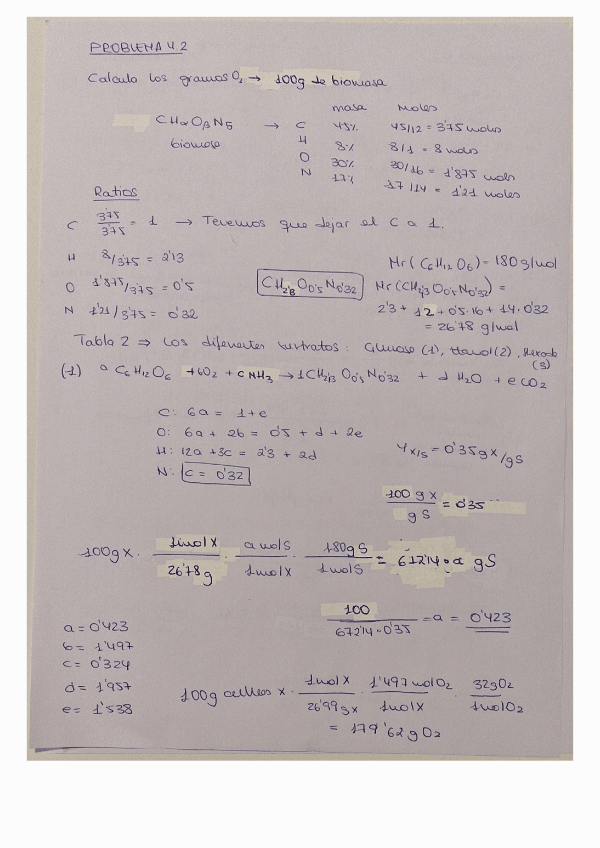 PROBLEMA 4.2
Calculo los gramos O2 → 100g de biomasa
masa moles
CHαOβNδ → C 45% 45/12 = 3'75 moles
biomasa H 8% 8/1 = 8 mols
O 30% 30/16 = 1'875 mols
N 17% 17/14 = 1'21 moles
Ratios
C 3'75/3'75 = 1 → Tenemos que dejar el C a 1.
H 8/3'75 = 2'13 Mr (C6H12O6) = 180g/mol
O 1'875/3'75 = 0'5 CH2'13O0'5N0'32 Mr (CH2'13O0'5N0'32) =
N 1'21/3'75 = 0'32 2'3 + 12 + 0'5·16 + 14·0'32
= 26'78 g/mol
Tabla 2 ⇒ Los diferentes sustratos: Glucose (1), Etanol (2), Hexado
(3)
(1) a C6H12O6 + bO2 + c NH3 → 1CH2'13O0'5N0'32 + d H2O + e CO2
C: 6a = 1+e
O: 6a + 2b = 0'5 + d + 2e
H: 12a + 3c = 2'3 + 2d Yx/s = 0'35gx/gS
N: c = 0'32
100 gx / gS = 0'35
100gx · 1molX / 26'78g · a molS / 1molX · 180gS / 1molS = 672'14·a gS
100 / 672'14·0'35 = a = 0'423
a = 0'423
b = 1'497
c = 0'324
d = 1'957
e = 1'538
100g celulas x · 1molX / 26'99gx · 1'497molO2 / 1molX · 32gO2 / 1molO2
= 179'62gO2